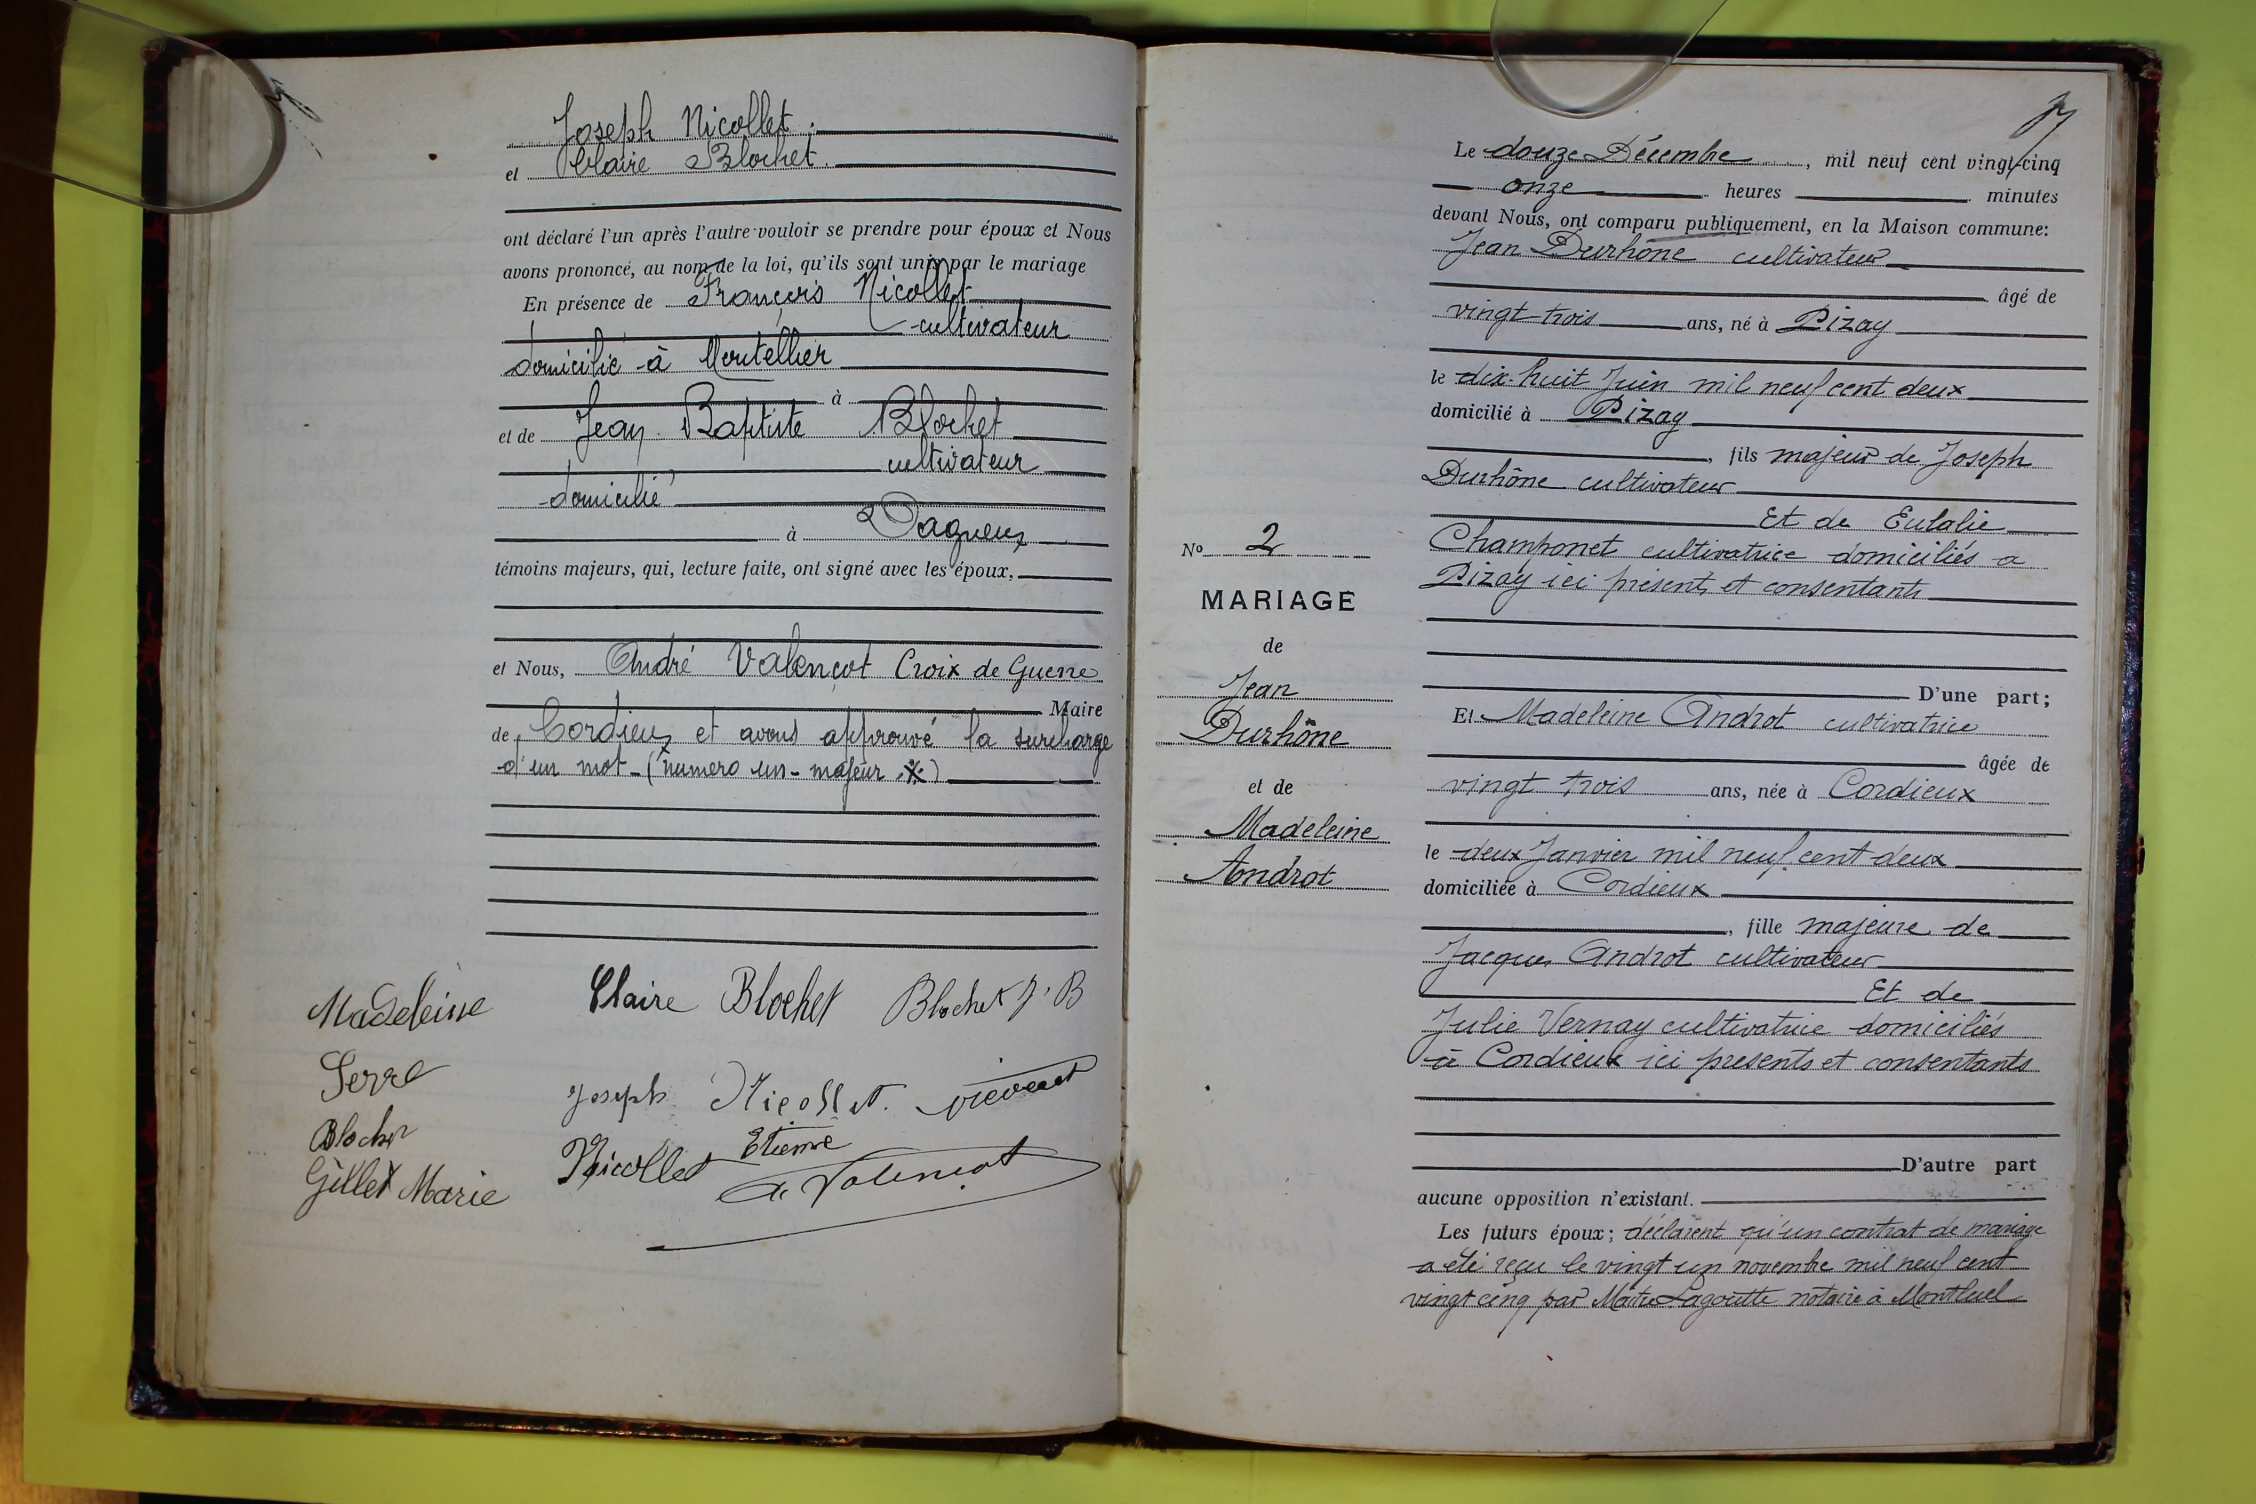 Joseph Nicollet.
et Claire Blochet.
ont déclaré l'un après l'autre vouloir se prendre pour époux et Nous
avons prononcé, au nom de la loi, qu'ils sont unis par le mariage
En présence de François Nicollet
cultivateur
domicilié à Montellier
à
et de Jean Baptiste Blochet
cultivateur
domicilié
à Dagneux
témoins majeurs, qui, lecture faite, ont signé avec les époux,
et Nous, André Valençot Croix de Guerre
Maire
de Cordieux et avons approuvé la surcharge
d'un mot (numero un - majeur x)
Madeleine Claire Blochet Blochet J. B
Serre Joseph Nicollet.
Blochet Nicollet Etienne
Gillet Marie A. Valençot
Le douze Décembre, mil neuf cent vingt-cinq
onze heures minutes
devant Nous, ont comparu publiquement, en la Maison commune:
Jean Durhône cultivateur
âgé de
vingt-trois ans, né à Pizay
le dix-huit Juin mil neuf cent deux
domicilié à Pizay
, fils majeur de Joseph
Durhône cultivateur
Et de Eulalie
Champonet cultivatrice domiciliés a
Pizay ici présents et consentants
D'une part;
Et Madeleine Androt cultivatrice
âgée de
vingt trois ans, née à Cordieux
le deux Janvier mil neuf cent deux
domiciliée à Cordieux
, fille majeure de
Jacques Androt cultivateur
Et de
Julie Vernay cultivatrice domiciliés
à Cordieux ici presents et consentants
D'autre part
aucune opposition n'existant.
Les futurs époux; déclarent qu'un contrat de mariage
a été reçu le vingt un novembre mil neuf cent
vingt cinq par Maitre Lagoutte notaire à Montluel
No 2
MARIAGE
de
Jean
Durhône
et de
Madeleine
Androt